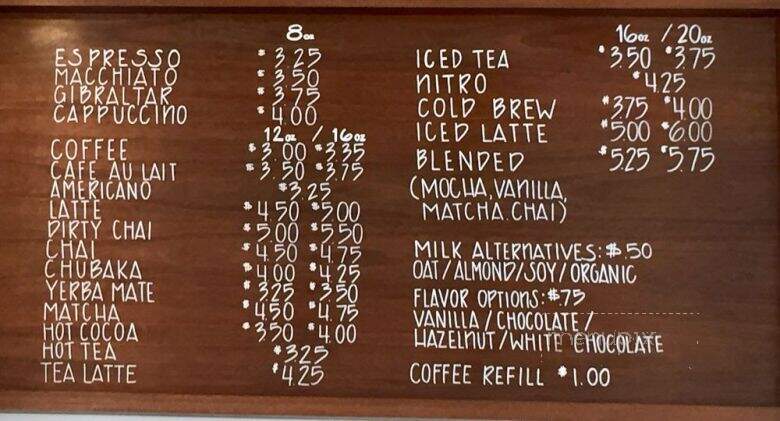 8oz
ESPRESSO $3.25
MACCHIATO $3.50
GIBRALTAR $3.75
CAPPUCCINO $4.00
12oz / 16oz
COFFEE $3.00 $3.35
CAFE AU LAIT $3.50 $3.75
AMERICANO $3.25
LATTE $4.50 $5.00
DIRTY CHAI $5.00 $5.50
CHAI $4.50 $4.75
CHUBAKA $4.00 $4.25
YERBA MATE $3.25 $3.50
MATCHA $4.50 $4.75
HOT COCOA $3.50 $4.00
HOT TEA $3.25
TEA LATTE $4.25
16oz / 20oz
ICED TEA $3.50 $3.75
NITRO $4.25
COLD BREW $3.75 $4.00
ICED LATTE $5.00 $6.00
BLENDED $5.25 $5.75
(MOCHA, VANILLA,
MATCHA. CHAI)
MILK ALTERNATIVES: $.50
OAT/ALMOND/SOY/ORGANIC
FLAVOR OPTIONS: $.75
VANILLA/CHOCOLATE/
HAZELNUT/WHITE CHOCOLATE
COFFEE REFILL $1.00